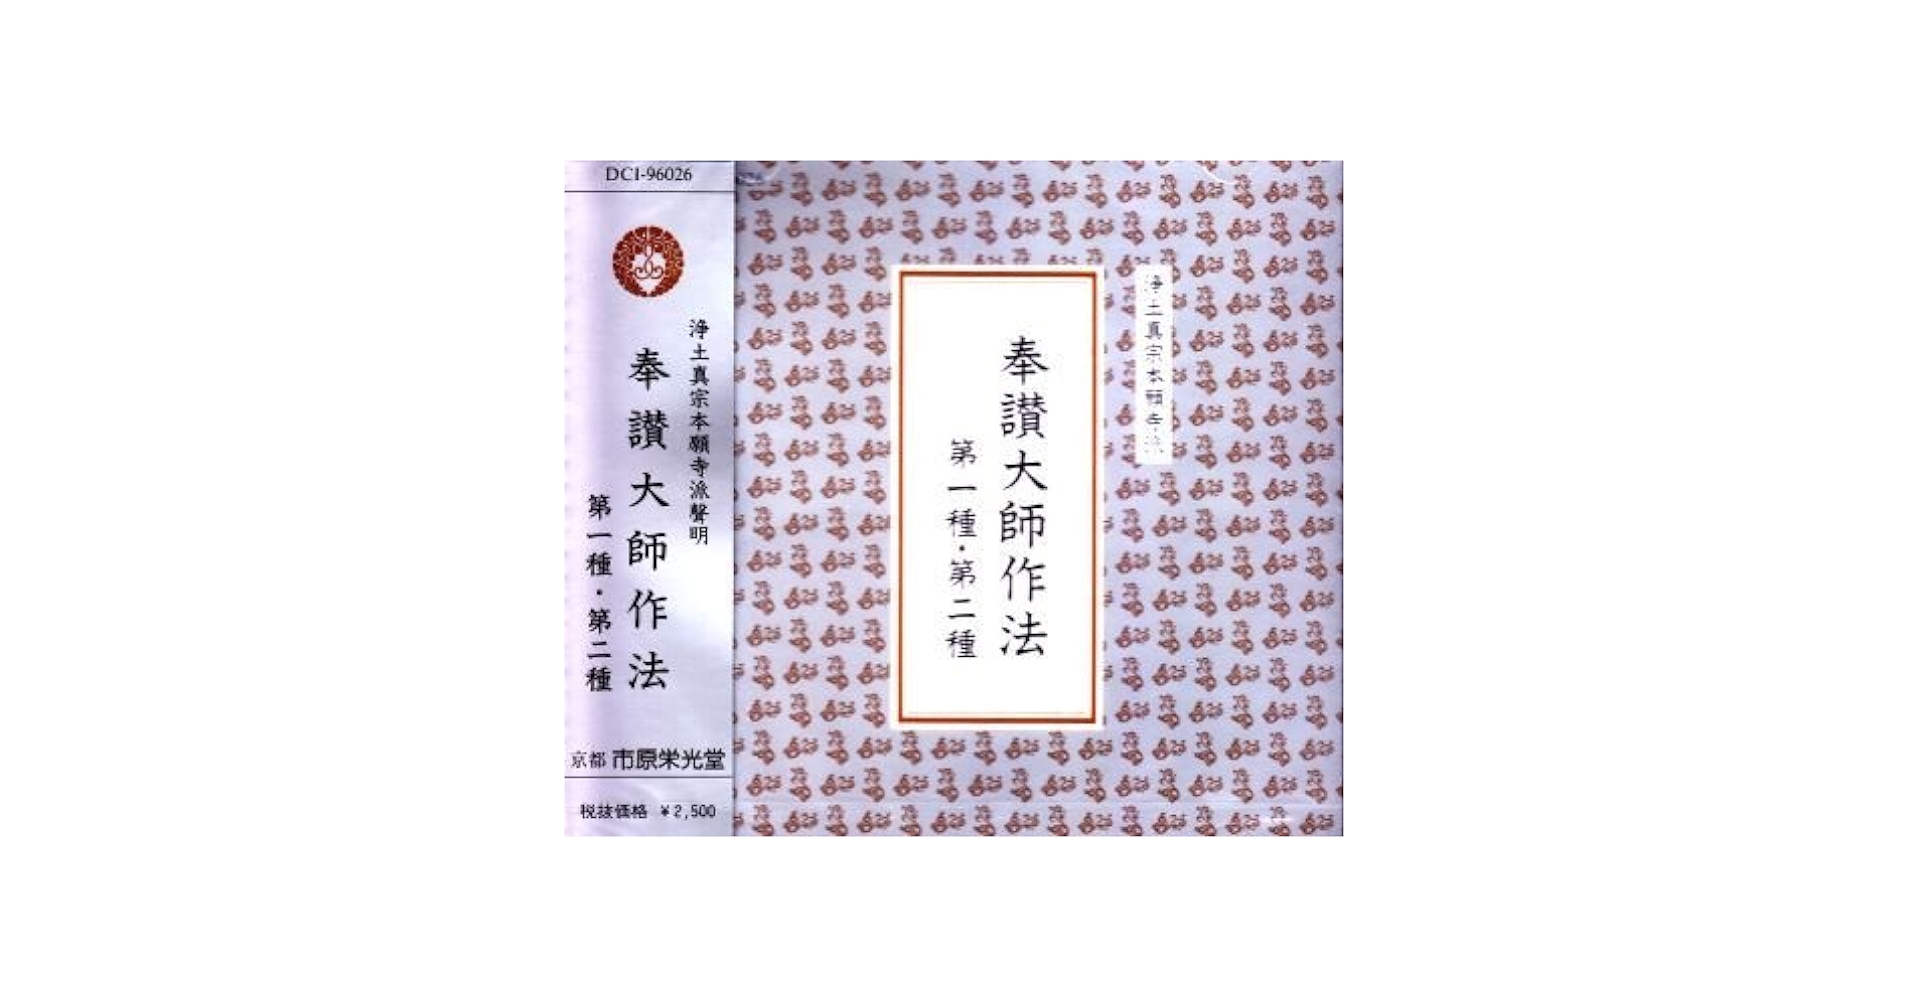 DCI-96026
浄土真宗本願寺派聲明
奉讃大師作法
第一種・第二種
京都 市原栄光堂
税抜価格 ¥2,500
浄土真宗本願寺派
奉讃大師作法
第一種・第二種